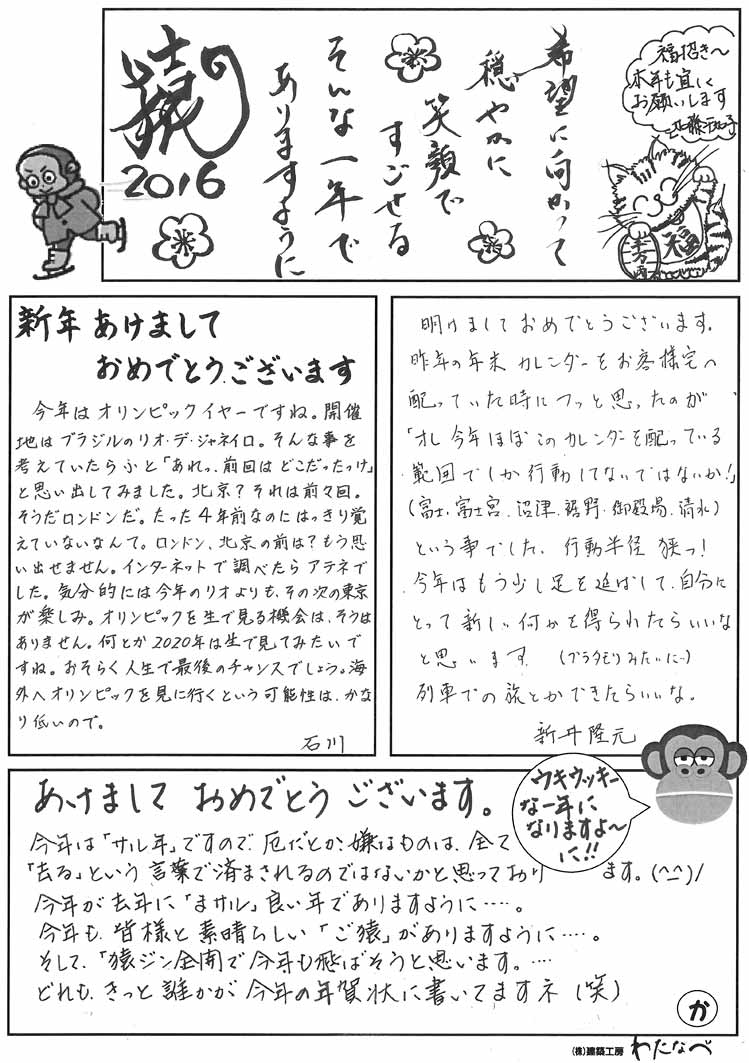 猿
2016
希望に向かって
穏やかに
笑顔で
すごせる
そんな一年で
ありますように
福招き〜
本年も宜しく
お願いします
福
千万両
新年 あけまして
おめでとうございます
今年はオリンピックイヤーですね。開催
地はブラジルのリオ・デ・ジャネイロ。そんな事を
考えていたらふと「あれっ、前回はどこだったっけ」
と思い出してみました。北京？それは前々回。
そうだロンドンだ。たった4年前なのにはっきり覚
えていないなんて。ロンドン、北京の前は？もう思
い出せません。インターネットで調べたらアテネで
した。気分的には今年のリオよりも、その次の東京
が楽しみ。オリンピックを生で見る機会は、そうは
ありません。何とか2020年は生で見てみたいで
すね。おそらく人生で最後のチャンスでしょう。海
外へオリンピックを見に行くという可能性は、かな
り低いので。
石川
明けましておめでとうございます。
昨年の年末カレンダーをお客様宅へ
配っていた時にフッと思ったのが
「オレ今年ほぼこのカレンダーを配っている
範囲でしか行動してないではないか！」
(富士、富士宮、沼津、裾野、御殿場、清水)
という事でした。行動半径 狭っ！
今年はもう少し足を延ばして、自分に
とって新しい何かを得られたらいいな
と思います (ブラタモリみたいにー)
列車での旅とかできたらいいな。
新井隆元
あけまして おめでとう ございます。
今年は「サル年」ですので、厄だとか、嫌なものは、全て
「去る」という言葉で済まされるのではないかと思っており ます。(^^)/
今年が去年に「まサル」良い年でありますように‥‥。
今年も、皆様と素晴らしい「ご猿」がありますように‥‥。
そして、「猿ジン全開で今年も飛ばそうと思います。‥‥
どれも、きっと誰かが、今年の年賀状に書いてますネ(笑)
ウキウッキー
な一年に
なりますよ〜
に!!
か
(株)建築工房 わたなべ